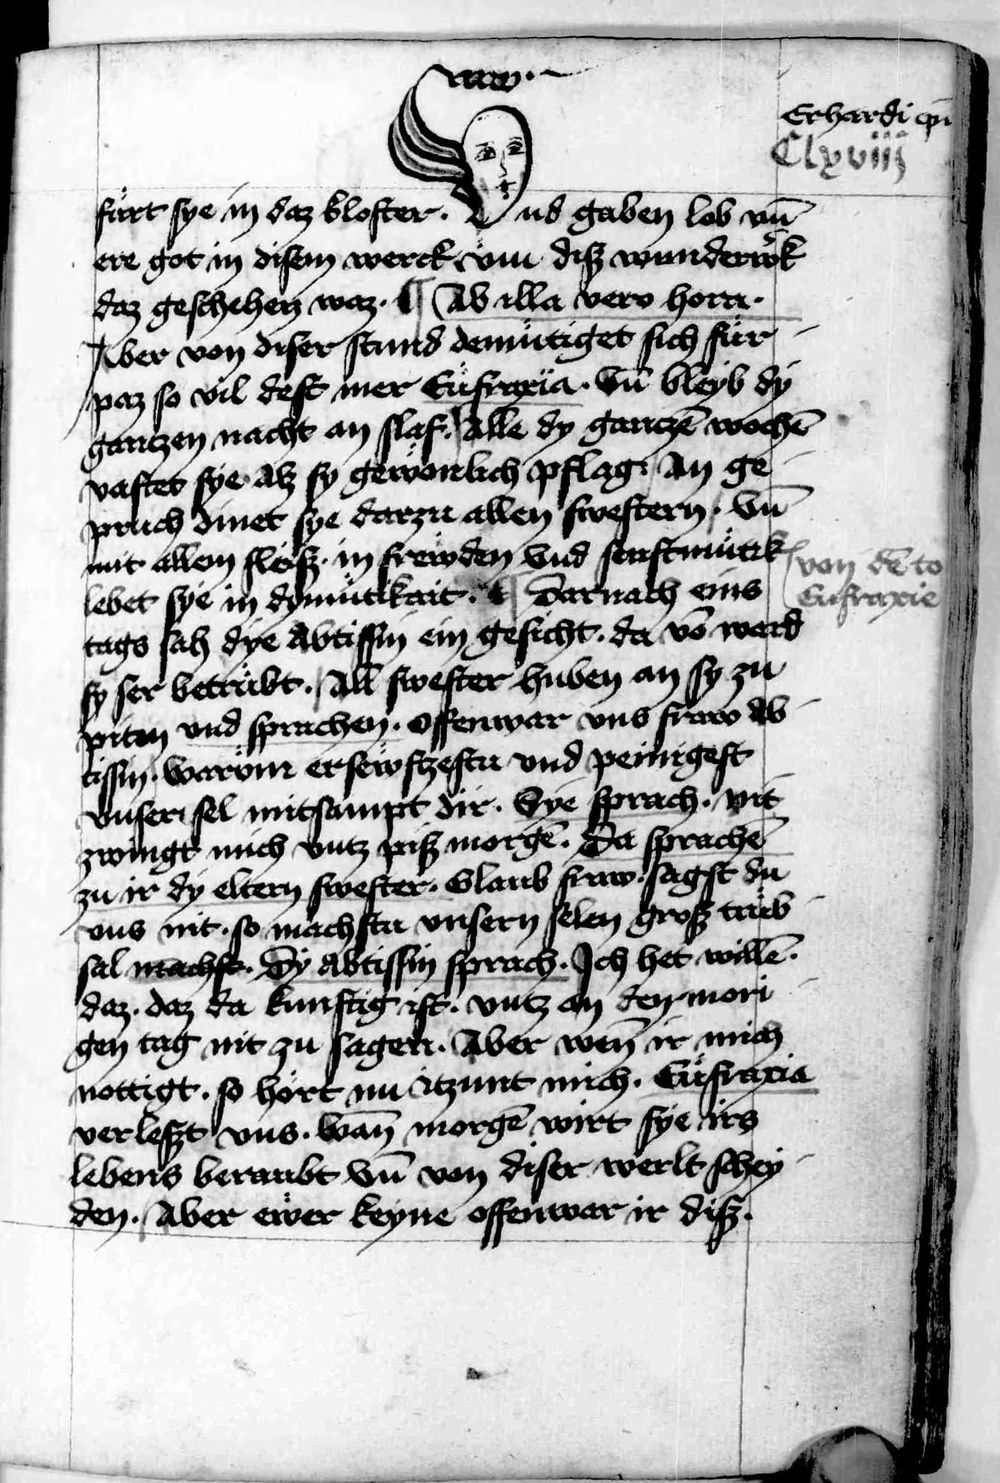 Erhardi epi
Clxviij
fürt sye in daz kloster. Und gaben lob vn̄
ere got in disem werck vm diß wunderwerk
daz geschehen waz. ¶ Ab illa vero hora.
Aber von diser stund demütiget sich für
paz so vil dest mer Eüfraxia. Vn̄ bleyb dy
gantzen nacht an slaf. Alle dy gantzē wochē
vastet sye Alz sy gewönlich pflag. An ge
pruch dinet sye darzu allen swestern. Vn̄
mit allem fleiß. in frewden Vnd senftmütik
lebet sye in dymütikait. ¶ Darnach eins
von dē to
Eufraxie
tags sah dye Abtissin ein gesicht. da vō ward
sy ser betrübt. All swester huben an sy zu
piten vnd sprachen. offenwar vns fraw Ab
tissin. Warüm ersewftzestu vnd peinigest
vnser sel mitsampt dir. Sye sprach. nit
zwingt mich vntz piß morgē. Da sprachē
zu ir dy eltern swester. Glaub fraw. sagst du
vns nit. so machstu vnsern selen groß trüb
sal machst. Dy Abtissin sprach. Ich het willē.
daz. daz da kunftig ist. vntz an den mori
gen tag nit zu sagen. Aber wen̄ ir mich
nottigt. so hört nu itzunt mich. Eüfraxia
verleßt vns. Wan̄ morgē wirt sye irs
lebens beraubt Vn̄ von diser werlt schey
den. Aber ewer keyne offenwar ir diß.